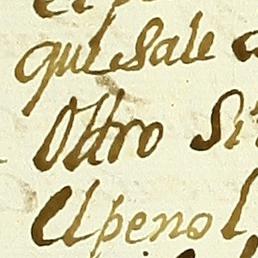 que Sale
Ottro Si
El penol